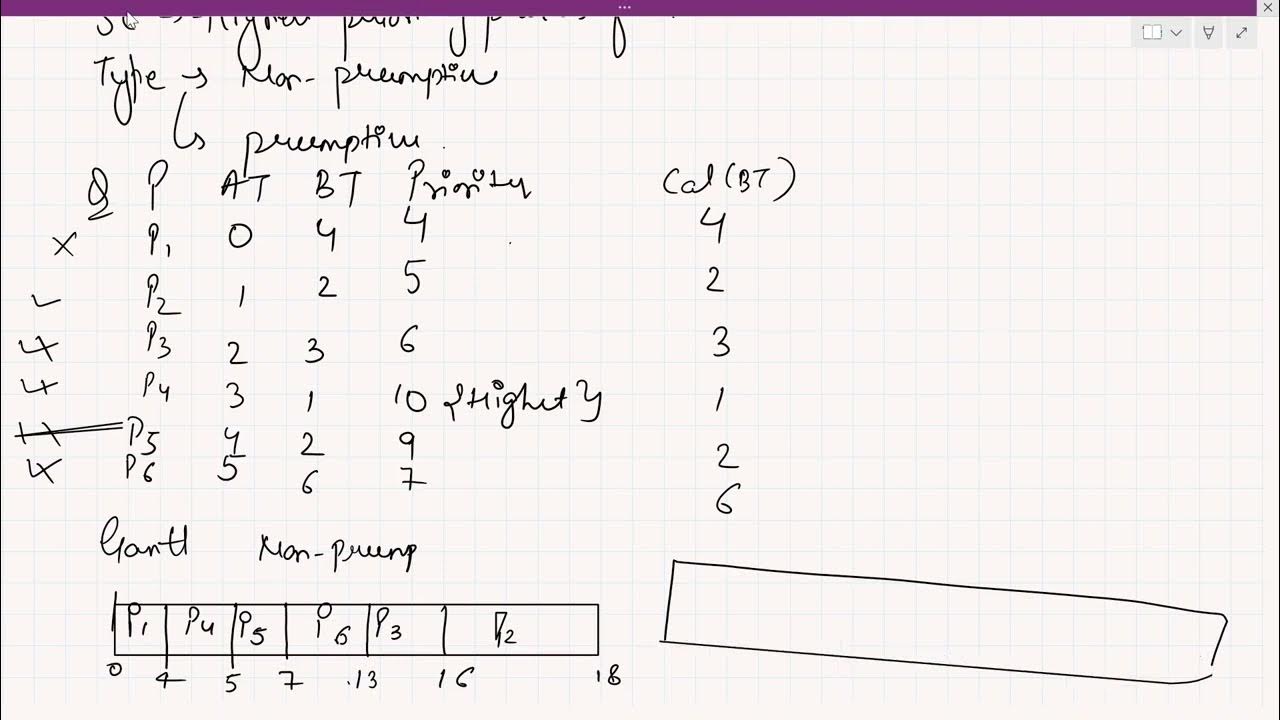 Type → Non-preemptive
↳ preemptive
Q P AT BT Priority Cal(BT)
P1 0 4 4 4
P2 1 2 5 2
P3 2 3 6 3
P4 3 1 10 {Highet} 1
P5 4 2 9 2
P6 5 6 7 6
Gantt Non-preemp
P1 P4 P5 P6 P3 P2
0 4 5 7 13 16 18